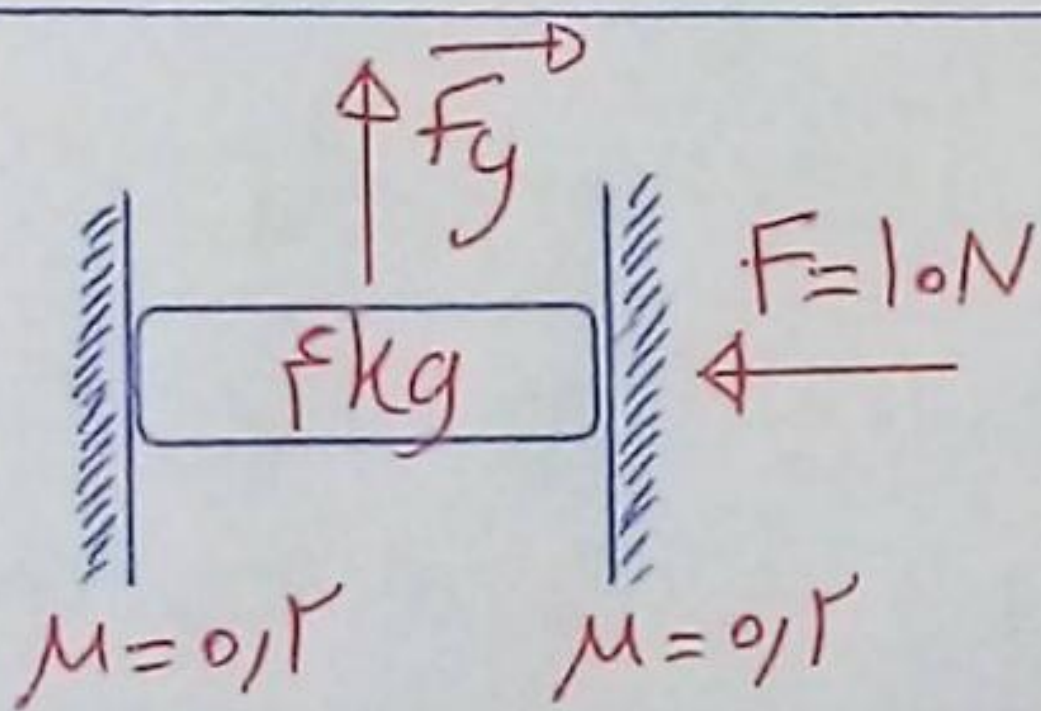 Fy
F=۱۰N
۴kg
μ=۰,۲ μ=۰,۲